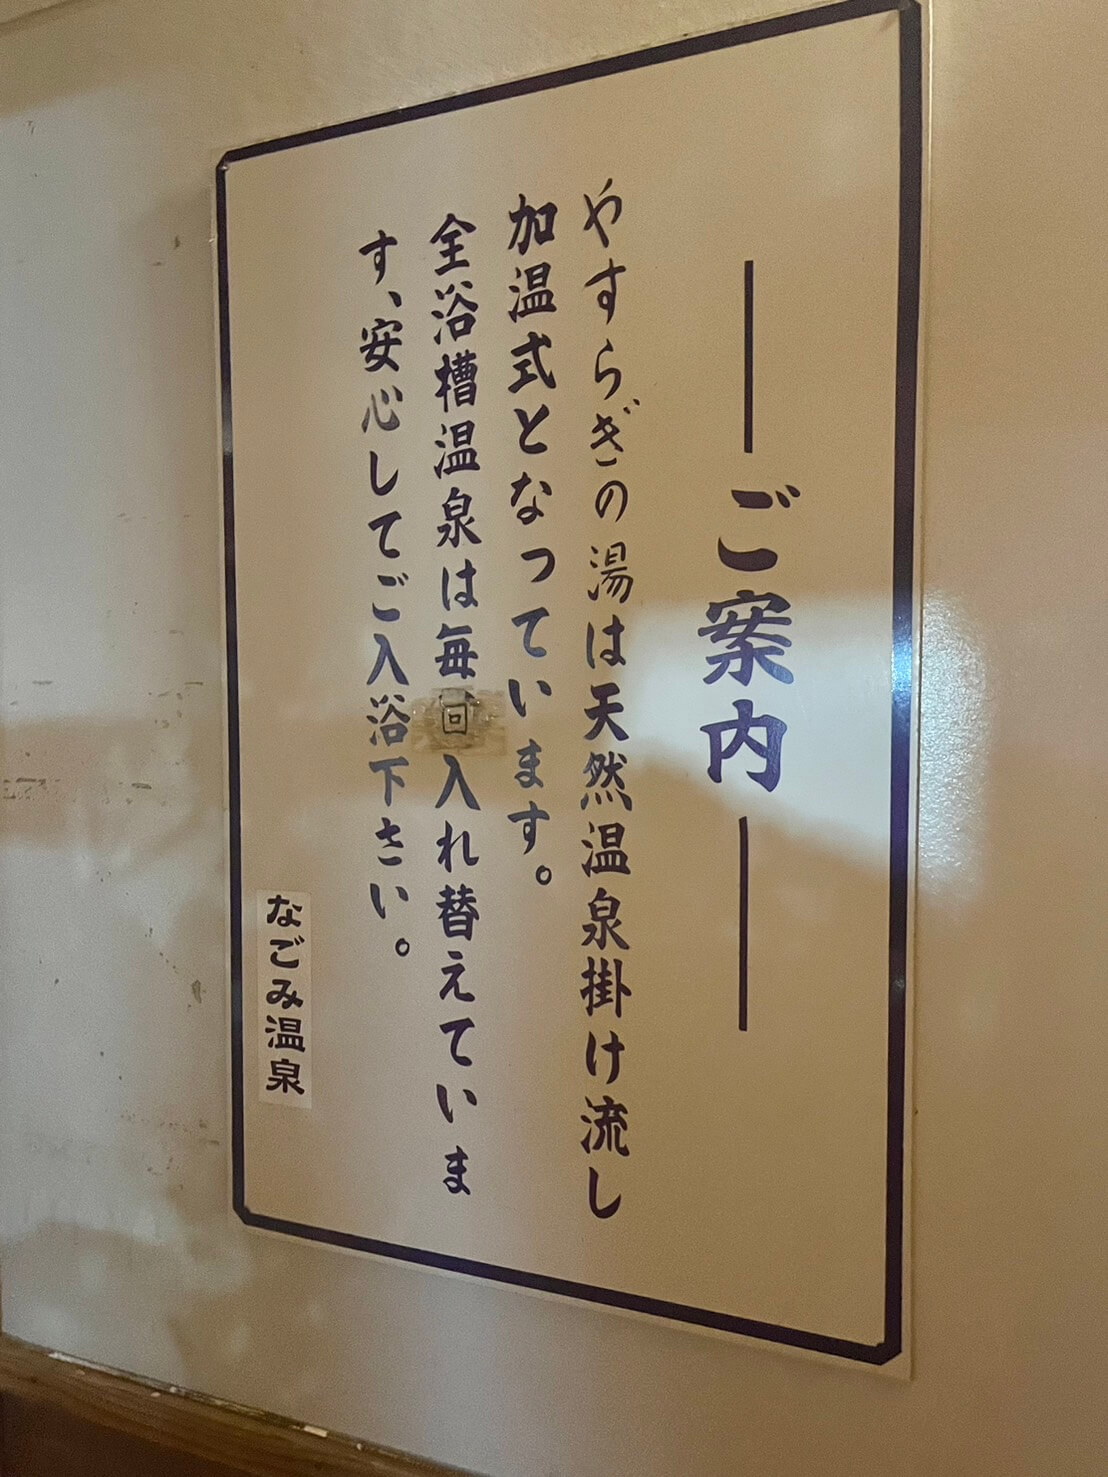 ご案内
やすらぎの湯は天然温泉掛け流し
加温式となっています。
全浴槽温泉は毎回入れ替えていま
す、安心してご入浴下さい。
なごみ温泉